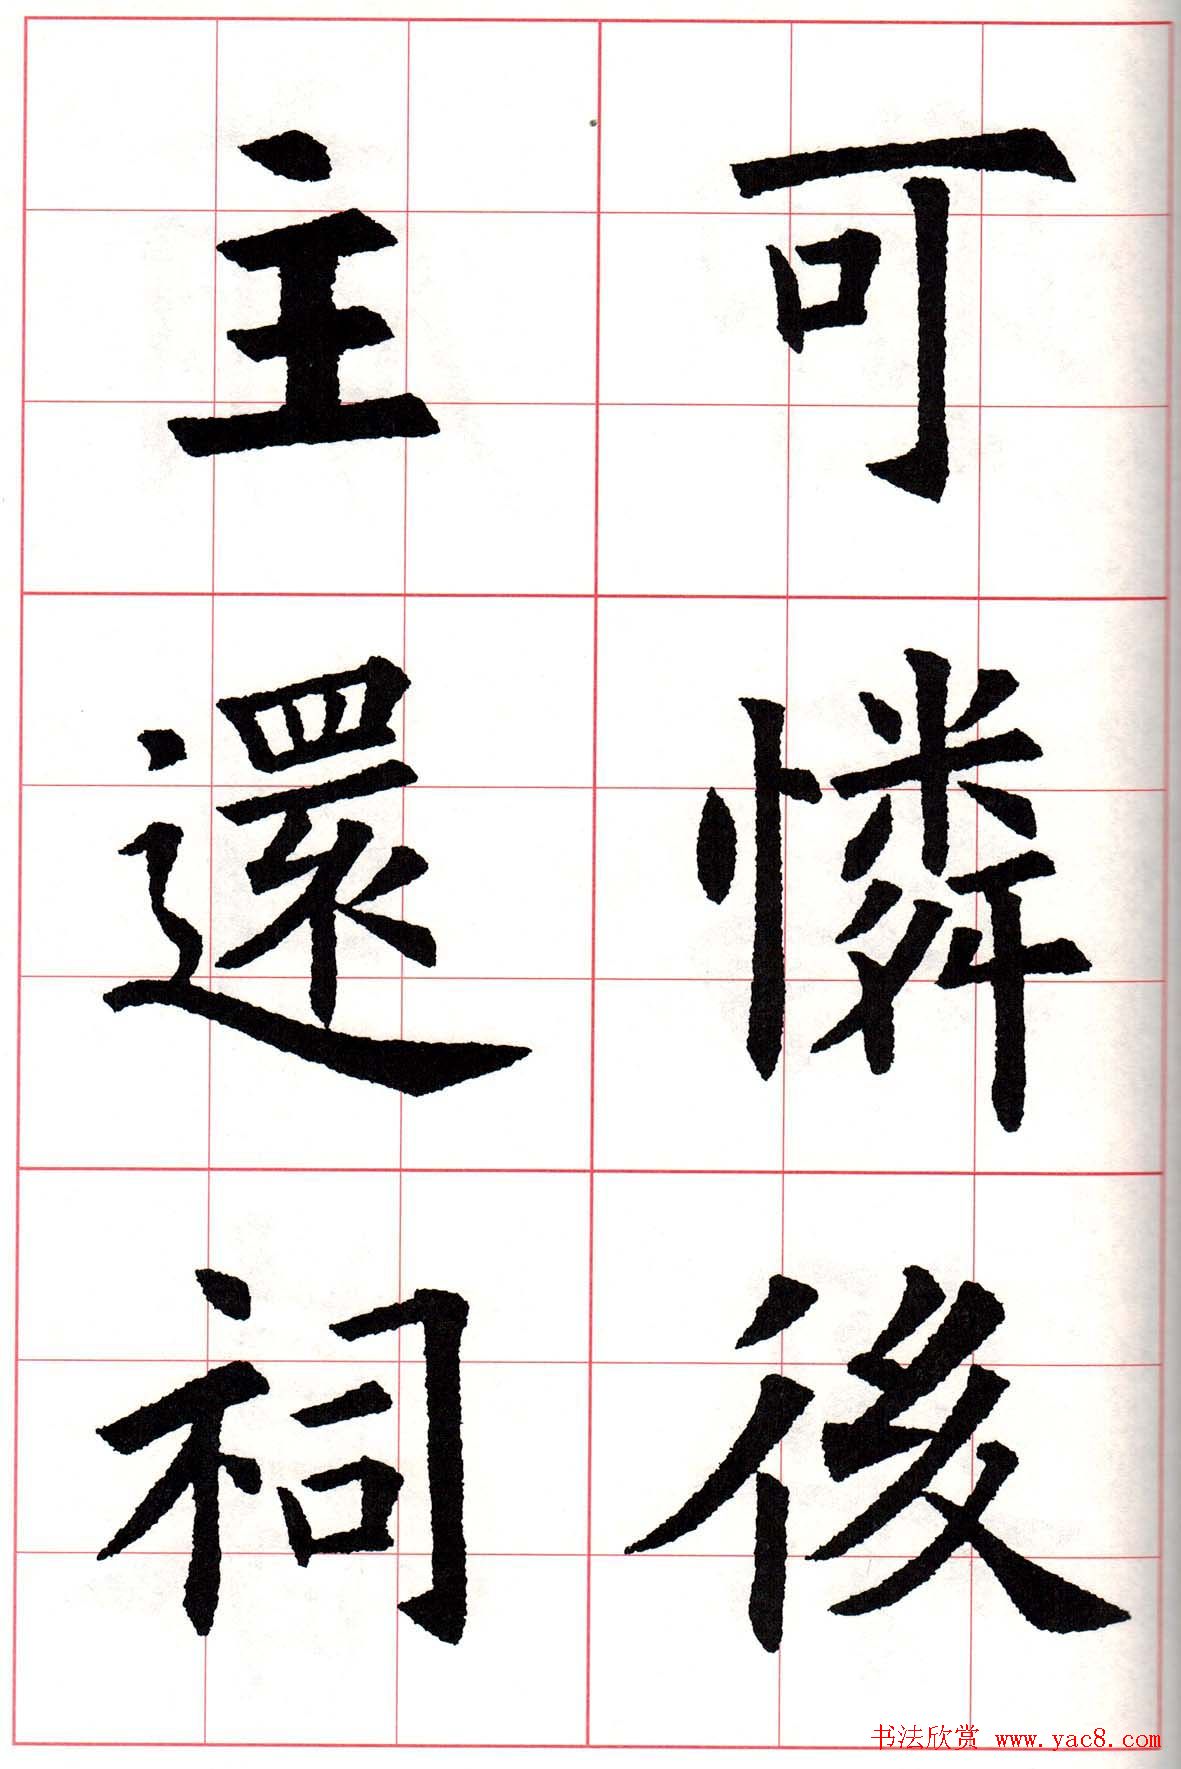 可憐後
主還祠
书法欣赏 www.yac8.com